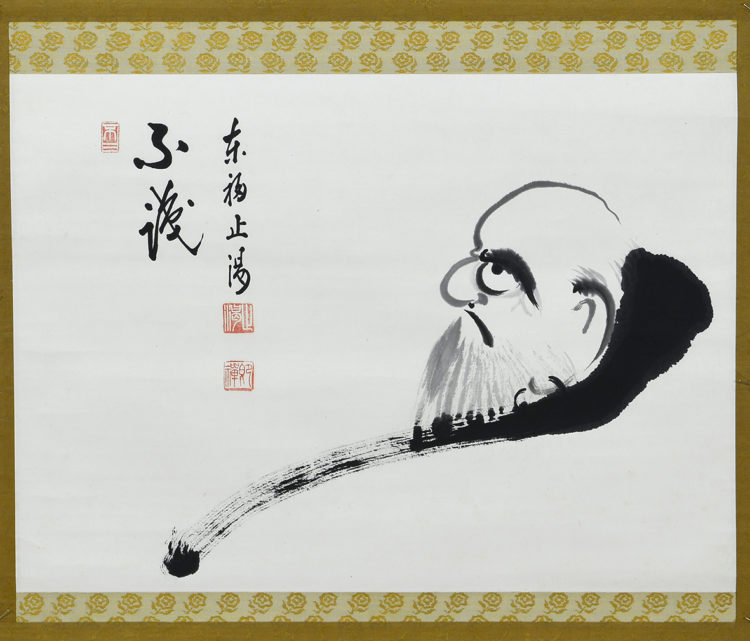 東福止渇
不識